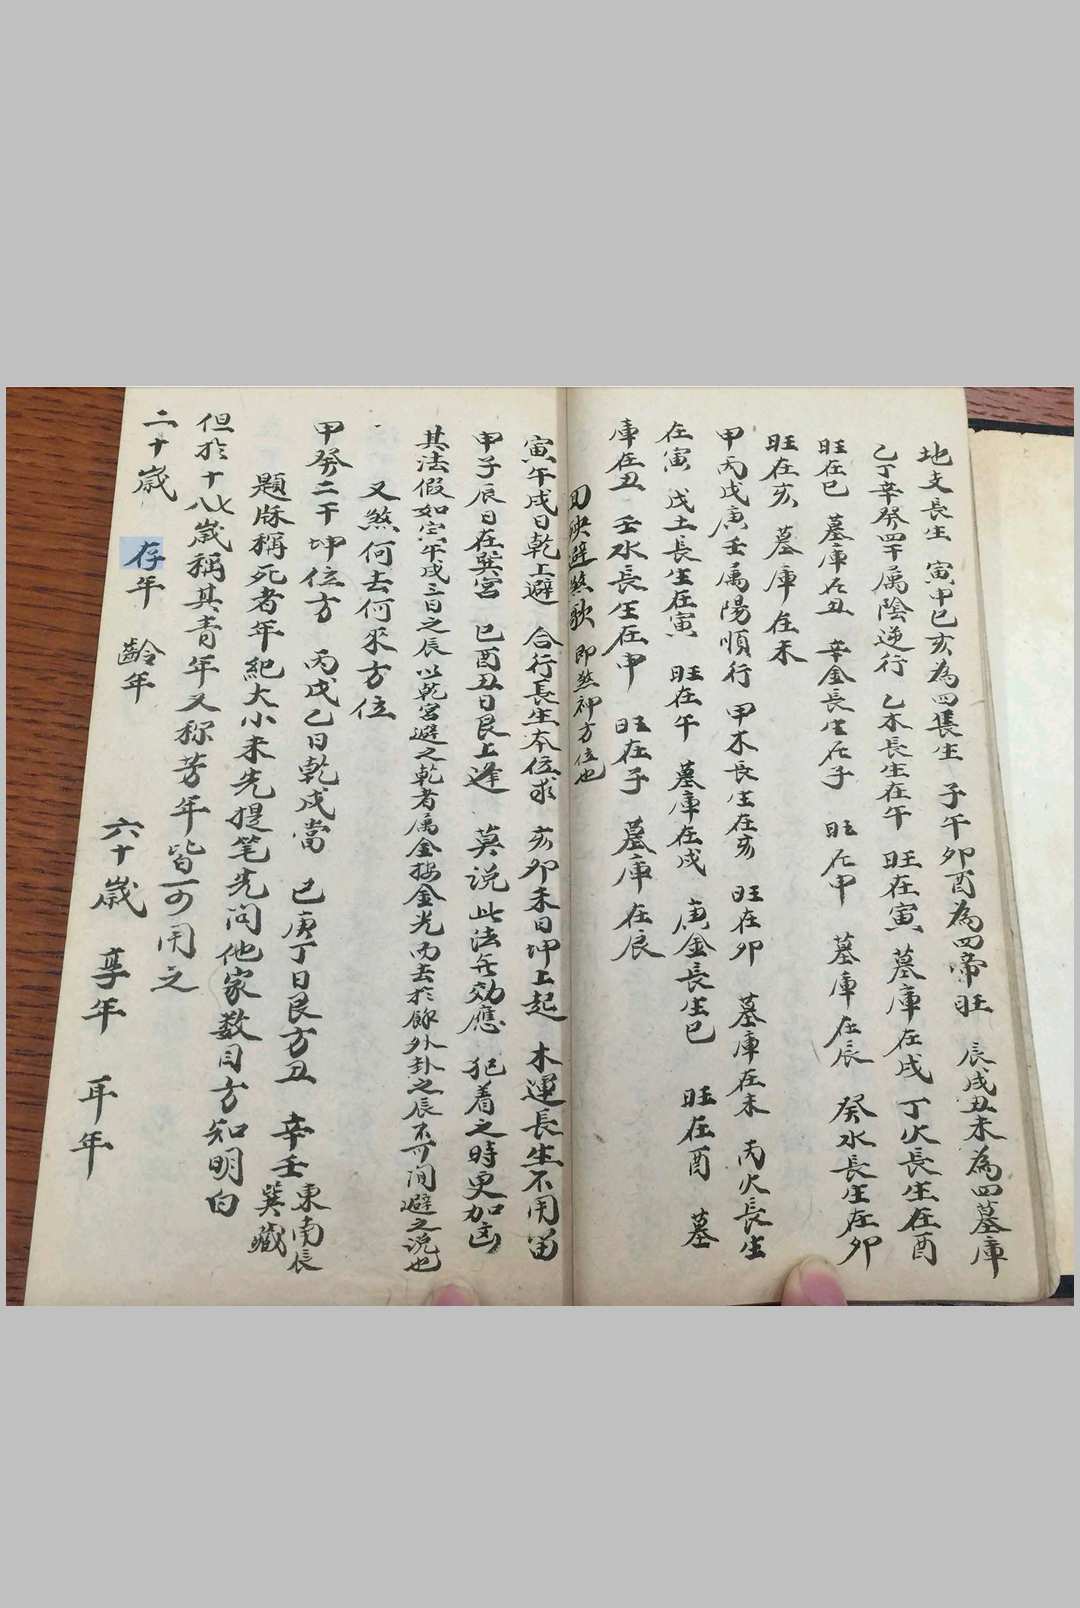 地支長生 寅申巳亥為四長生 子午卯酉為四帝旺 辰戌丑未為四墓庫
乙丁辛癸四干属陰逆行 乙木長生在午 旺在寅 墓庫在戌 丁火長生在酉
旺在巳 墓庫在丑 辛金長生在子 旺在申 墓庫在辰 癸水長生在卯
旺在亥 墓庫在未
甲丙戊庚壬属陽順行 甲木長生在亥 旺在卯 墓庫在未 丙火長生
在寅 戊土長生在寅 旺在午 墓庫在戌 庚金長生巳 旺在酉 墓
庫在丑 壬水長生在申 旺在子 墓庫在辰
回殃避煞歌 即煞神方位也
寅午戌日乾上避 合行長生本位求 亥卯未日坤上起 木運長生不用留
申子辰日在巽宮 巳酉丑日艮上逢 莫说此法无効應 犯着之時更加凶
其法假如寅午戌三日之辰以乾宮避之乾者属金按金光而去於餘外卦之辰不可間避之说也
又煞何去何來方位
甲癸二干坤位方 丙戊乙日乾戌當 己庚丁日艮方丑 辛壬東南長巽藏
題麻稱死者年紀大小未先提笔先问他家数目方知明白
但於十八七歲稱其青年又称芳年皆可用之
二十歲 存年 齡年 六十歲 享年 年